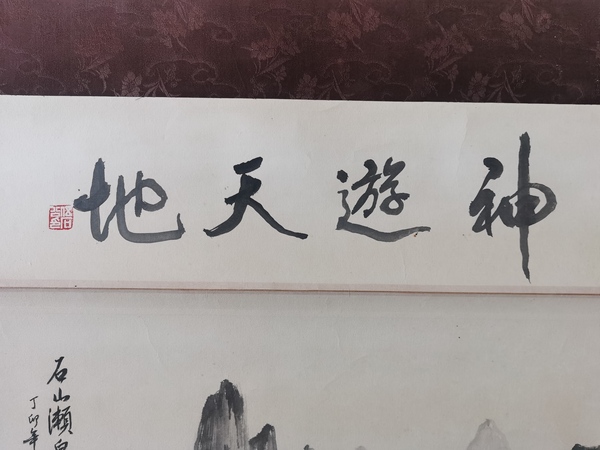 神遊天地
石山瀨泉
丁卯年